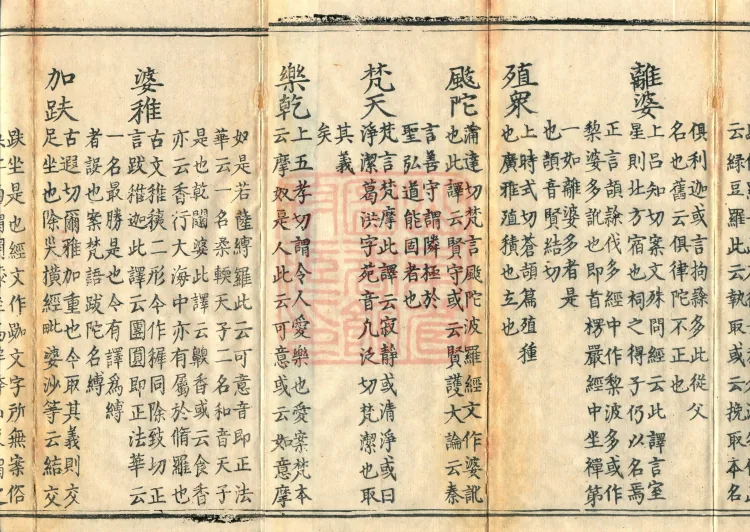 云綠豆羅此云執取或云挽取本名
俱利迦或言拘隸多此從父
名也舊云俱律陀不正也
離婆
上呂知切案文殊問經云此譯言室
星則北方宿也祠之得子仍以名焉
正言頡隸伐多經中作黎波多或作
黎婆多訛也即首楞嚴經中坐禪第
一如離婆多者是
也頡音賢結切
殖眾
上時式切蒼頡篇殖種
也廣雅殖積也立也
颰陀
蒲達切梵言颰陀波羅經文作婆訛
也此譯云賢守或云賢護大論云秦
言善守謂隣極於
聖弘道能固者也
梵天
梵言梵摩此譯云寂靜或清淨或曰
淨潔葛洪字苑音凡泛切梵潔也取
其義
矣
樂乾
上五孝切謂令人愛樂也愛案梵本
云摩奴是人此云可意或云如意摩
如是若薩縛羅此云可意音即正法
華云一名柔軟天子二名和音天子
是也乾闥婆此譯云齅香或云食香
亦云香行大海中亦有屬於脩羅也
婆稚
古文稚二形今作稺同除致切正
言跋稚迦此譯云團圓即正法華云
一名最勝是也今有譯爲縛
者誤也案梵語跋陀名縛
加趺
古遐切爾雅加重也今取其義則交
足坐也除灾橫經毗婆沙等云結交
趺坐是也經文作跏文字所無案俗